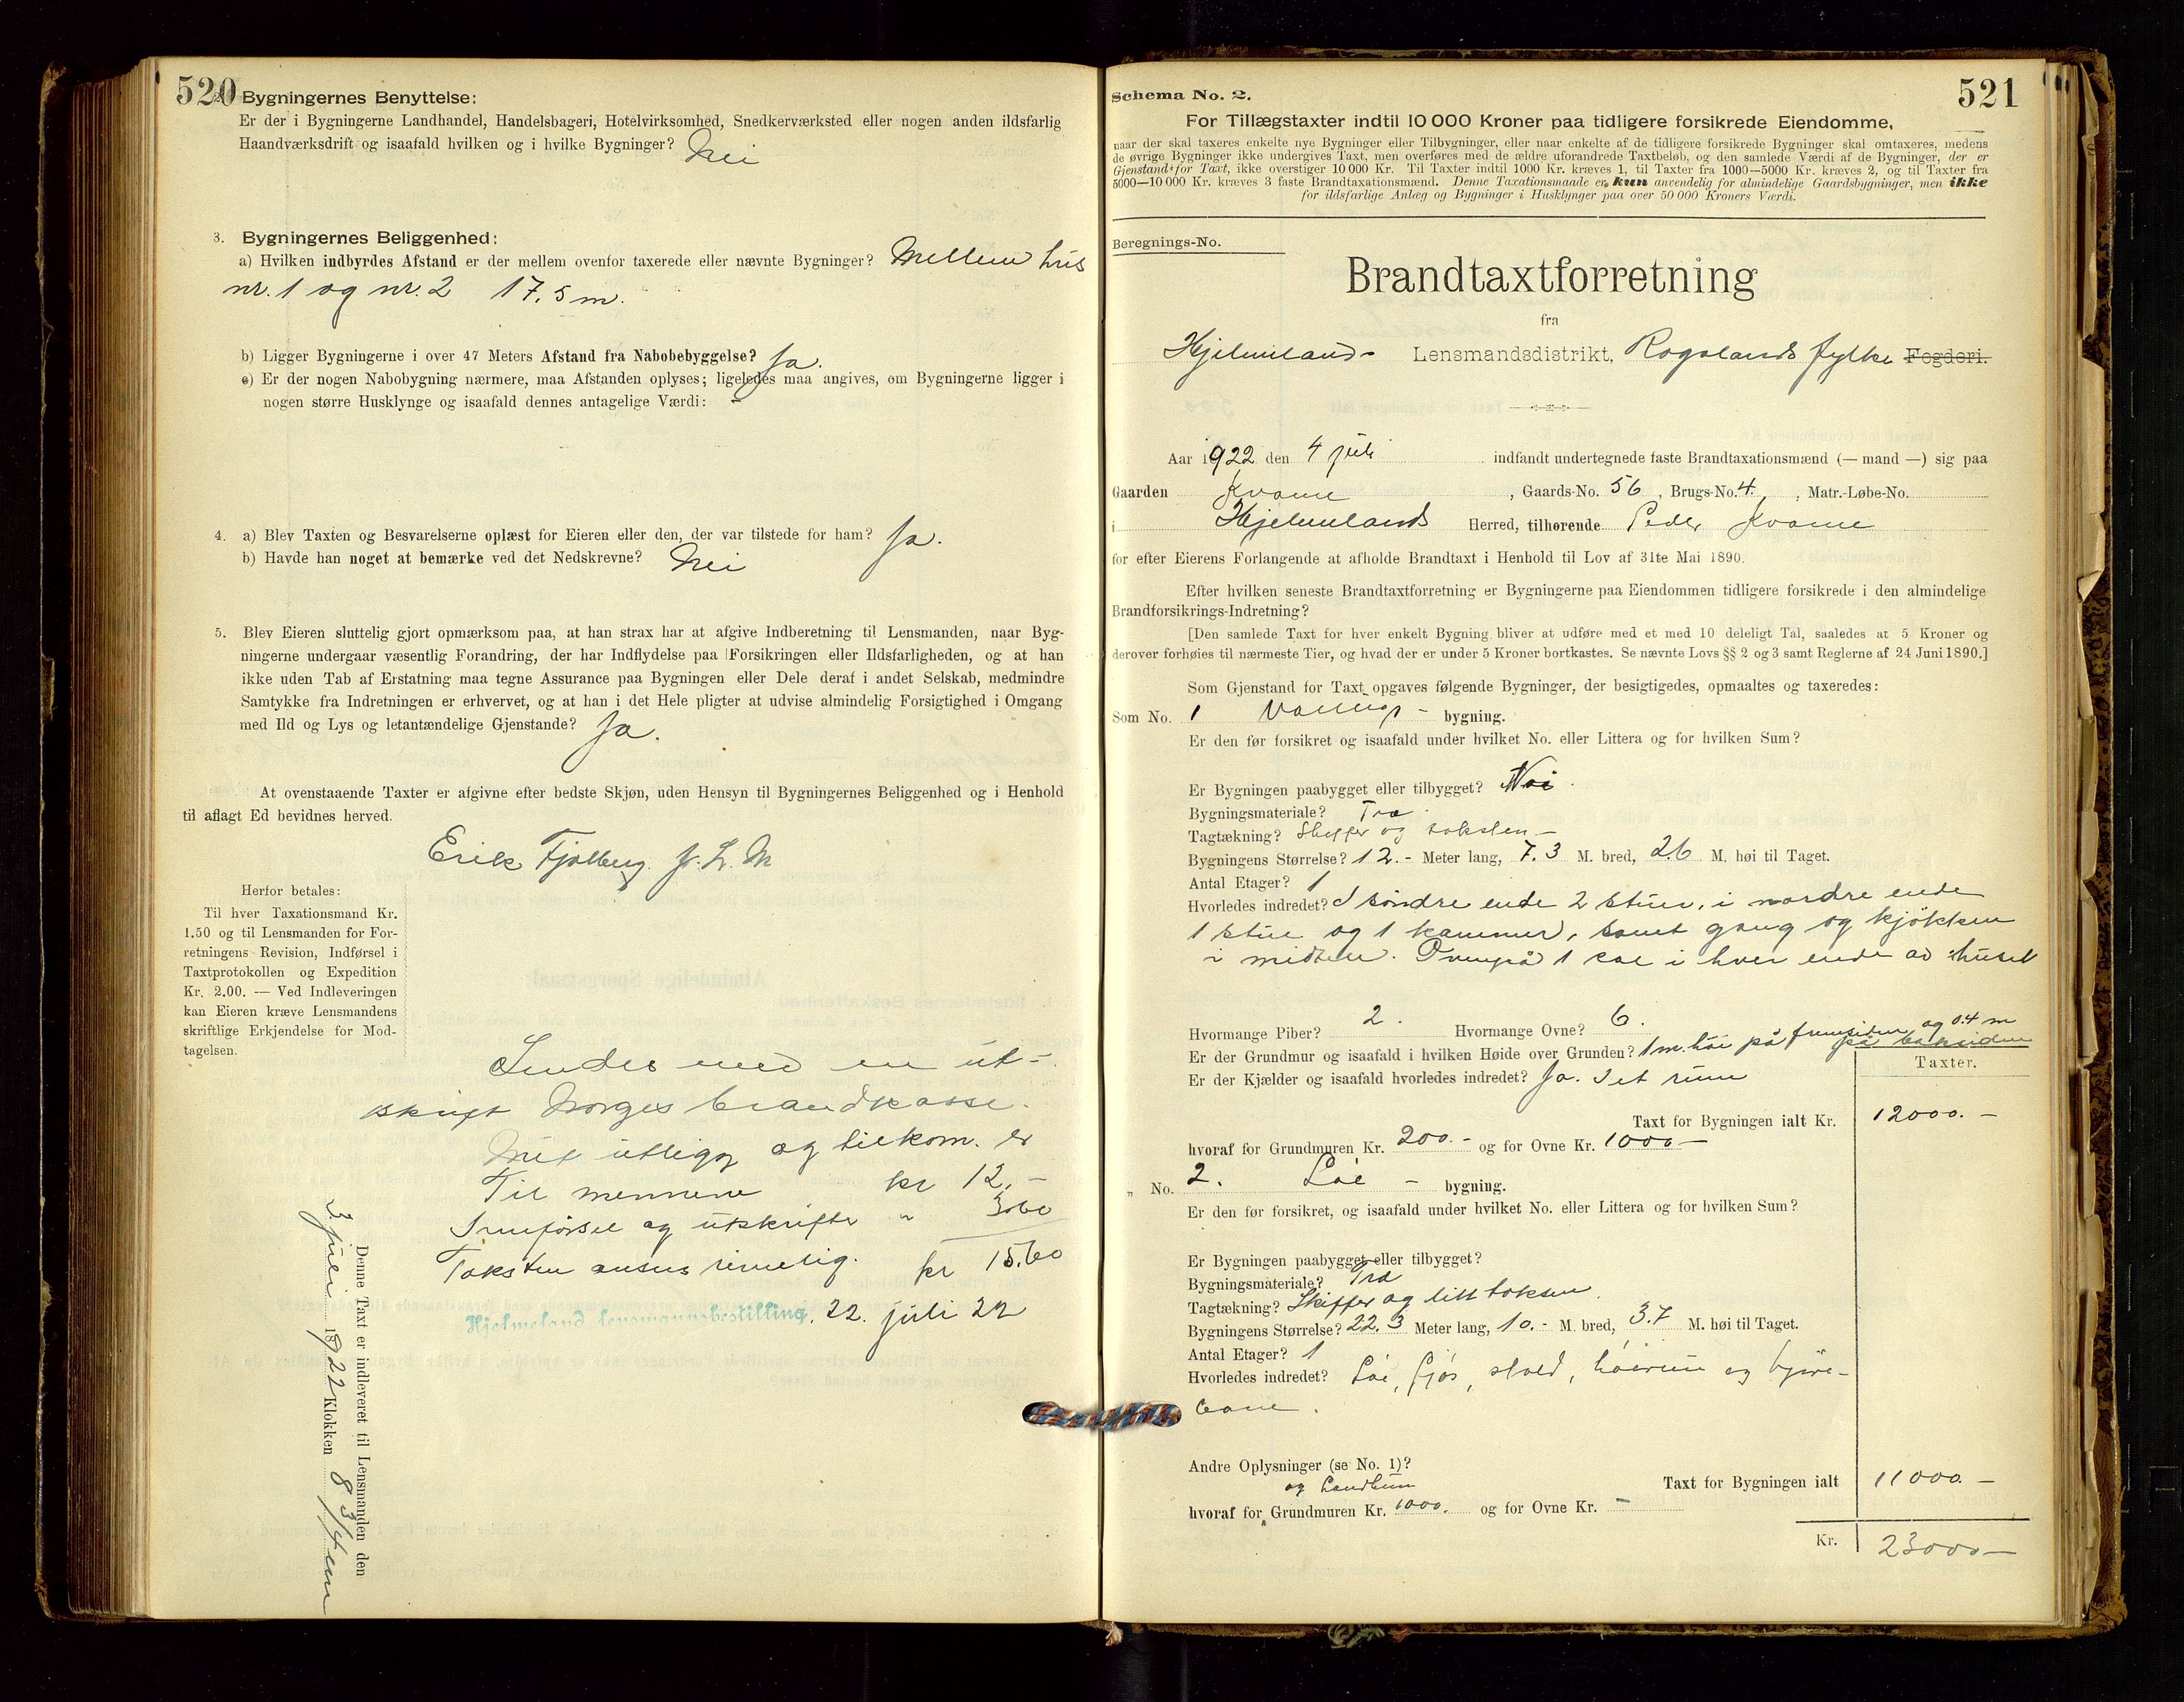 520
Bygningernes Benyttelse:
Er der i Bygningerne Landhandel, Handelsbageri, Hotelvirksomhed, Snedkerværksted eller nogen anden ildsfarlig
Haandværksdrift og isaafald hvilken og i hvilke Bygninger? Nei
3. Bygningernes Beliggenhed:
a) Hvilken indbyrdes Afstand er der mellem ovenfor taxerede eller nævnte Bygninger? Mellem hus
nr. 1 og nr. 2 17.5 m.
b) Ligger Bygningerne i over 47 Meters Afstand fra Nabobebyggelse? Ja.
c) Er der nogen Nabobygning nærmere, maa Afstanden oplyses; ligeledes maa angives, om Bygningerne ligger i
nogen større Husklynge og isaafald dennes antagelige Værdi: -
4. a) Blev Taxten og Besvarelserne oplæst for Eieren eller den, der var tilstede for ham? Ja.
b) Havde han noget at bemærke ved det Nedskrevne? Nei
5. Blev Eieren sluttelig gjort opmærksom paa, at han strax har at afgive Indberetning til Lensmanden, naar Byg-
ningerne undergaar væsentlig Forandring, der har Indflydelse paa Forsikringen eller Ildsfarligheden, og at han
ikke uden Tab af Erstatning maa tegne Assurance paa Bygningen eller Dele deraf i andet Selskab, medmindre
Samtykke fra Indretningen er erhvervet, og at han i det Hele pligter at udvise almindelig Forsigtighed i Omgang
med Ild og Lys og letantændelige Gjenstande? Ja.
At ovenstaaende Taxter er afgivne efter bedste Skjøn, uden Hensyn til Bygningernes Beliggenhed og i Henhold
til aflagt Ed bevidnes herved.
Erik Fjelberg
Herfor betales:
Til hver Taxationsmand Kr.
1.50 og til Lensmanden for For-
retningens Revision, Indførsel i
Taxtprotokollen og Expedition
Kr. 2.00. — Ved Indleveringen
kan Eieren kræve Lensmandens
skriftlige Erkjendelse for Mod-
tagelsen.
Sendes med en ut-
skrift Norges brandkasse.
Mit utlegg og tilkom. er
Til mennene kr 12.-
Innførsel og utskrifter " 3.60
Taksten anses rimelig. kr 15.60
Hjelmeland lensmannsbestilling, 22. juli 22
Denne Taxt er indleveret til Lensmanden den
3 juli 1922 Klokken 8 3/4 em
521
Schema No. 2.
For Tillægstaxter indtil 10 000 Kroner paa tidligere forsikrede Eiendomme,
naar der skal taxeres enkelte nye Bygninger eller Tilbygninger, eller naar enkelte af de tidligere forsikrede Bygninger skal omtaxeres, medens
de øvrige Bygninger ikke undergives Taxt, men overføres med de ældre uforandrede Taxtbeløb, og den samlede Værdi af de Bygninger, der er
Gjenstand for Taxt, ikke overstiger 10 000 Kr. Til Taxter indtil 1000 Kr. kræves 1, til Taxter fra 1000—5000 Kr. kræves 2, og til Taxter fra
5000—10 000 Kr. kræves 3 faste Brandtaxationsmænd. Denne Taxationsmaade er kun anvendelig for almindelige Gaardsbygninger, men ikke
for ildsfarlige Anlæg og Bygninger i Husklynger paa over 50 000 Kroners Værdi.
Beregnings-No.
Brandtaxtforretning
fra
Hjelmelands Lensmandsdistrikt, Rogalands fylke Fogderi.
Aar 1922 den 4 juli indfandt undertegnede faste Brandtaxationsmænd (— mand —) sig paa
Gaarden Kvame, Gaards-No. 56, Brugs-No. 4, Matr.-Løbe-No.
i Hjelmelands Herred, tilhørende Peder Kvame
for efter Eierens Forlangende at afholde Brandtaxt i Henhold til Lov af 31te Mai 1890.
Efter hvilken seneste Brandtaxtforretning er Bygningerne paa Eiendommen tidligere forsikrede i den almindelige
Brandforsikrings-Indretning?
[Den samlede Taxt for hver enkelt Bygning bliver at udføre med et med 10 deleligt Tal, saaledes at 5 Kroner og
derover forhøies til nærmeste Tier, og hvad der er under 5 Kroner bortkastes. Se nævnte Lovs §§ 2 og 3 samt Reglerne af 24 Juni 1890.]
Som Gjenstand for Taxt opgaves følgende Bygninger, der besigtigedes, opmaaltes og taxeredes:
Som No. 1 Vånings- bygning.
Er den før forsikret og isaafald under hvilket No. eller Littera og for hvilken Sum?
Er Bygningen paabygget eller tilbygget? Nei.
Bygningsmateriale? Træ
Tagtækning? Skiffer og taksten-
Bygningens Størrelse? 12.- Meter lang, 7.3 M. bred, 2.6 M. høi til Taget.
Antal Etager? 1
Hvorledes indredet? I søndre ende 2 stuer, i nordre ende
1 stue og 1 kammer, samt gang og kjøkken
i midten. Ovenpå 1 sal i hver ende av huset
Hvormange Piber? 2. Hvormange Ovne? 6.
Er der Grundmur og isaafald i hvilken Høide over Grunden? 1 m. høi på fremsiden og 0.4 m
på baksiden
Er der Kjælder og isaafald hvorledes indredet? Ja. I et rum
Taxter.
Taxt for Bygningen ialt Kr. 12000.-
hvoraf for Grundmuren Kr. 200.- og for Ovne Kr. 1000-
" No. 2. Løe- bygning.
Er den før forsikret, og isaafald under hvilket No. eller Littera og for hvilken Sum?
Er Bygningen paabygget eller tilbygget?
Bygningsmateriale? Træ
Tagtækning? Skiffer og litt taksten.
Bygningens Størrelse? 22.3 Meter lang, 10.- M. bred, 3.7 M. høi til Taget.
Antal Etager? 1
Hvorledes indredet? Løe, fjøs, stald, høirum og kjøre-
bane.
Andre Oplysninger (se No. 1)?
Taxt for Bygningen ialt 11000.-
og
hvoraf for Grundmuren Kr. 1000. og for Ovne Kr. -
Kr. 23000-